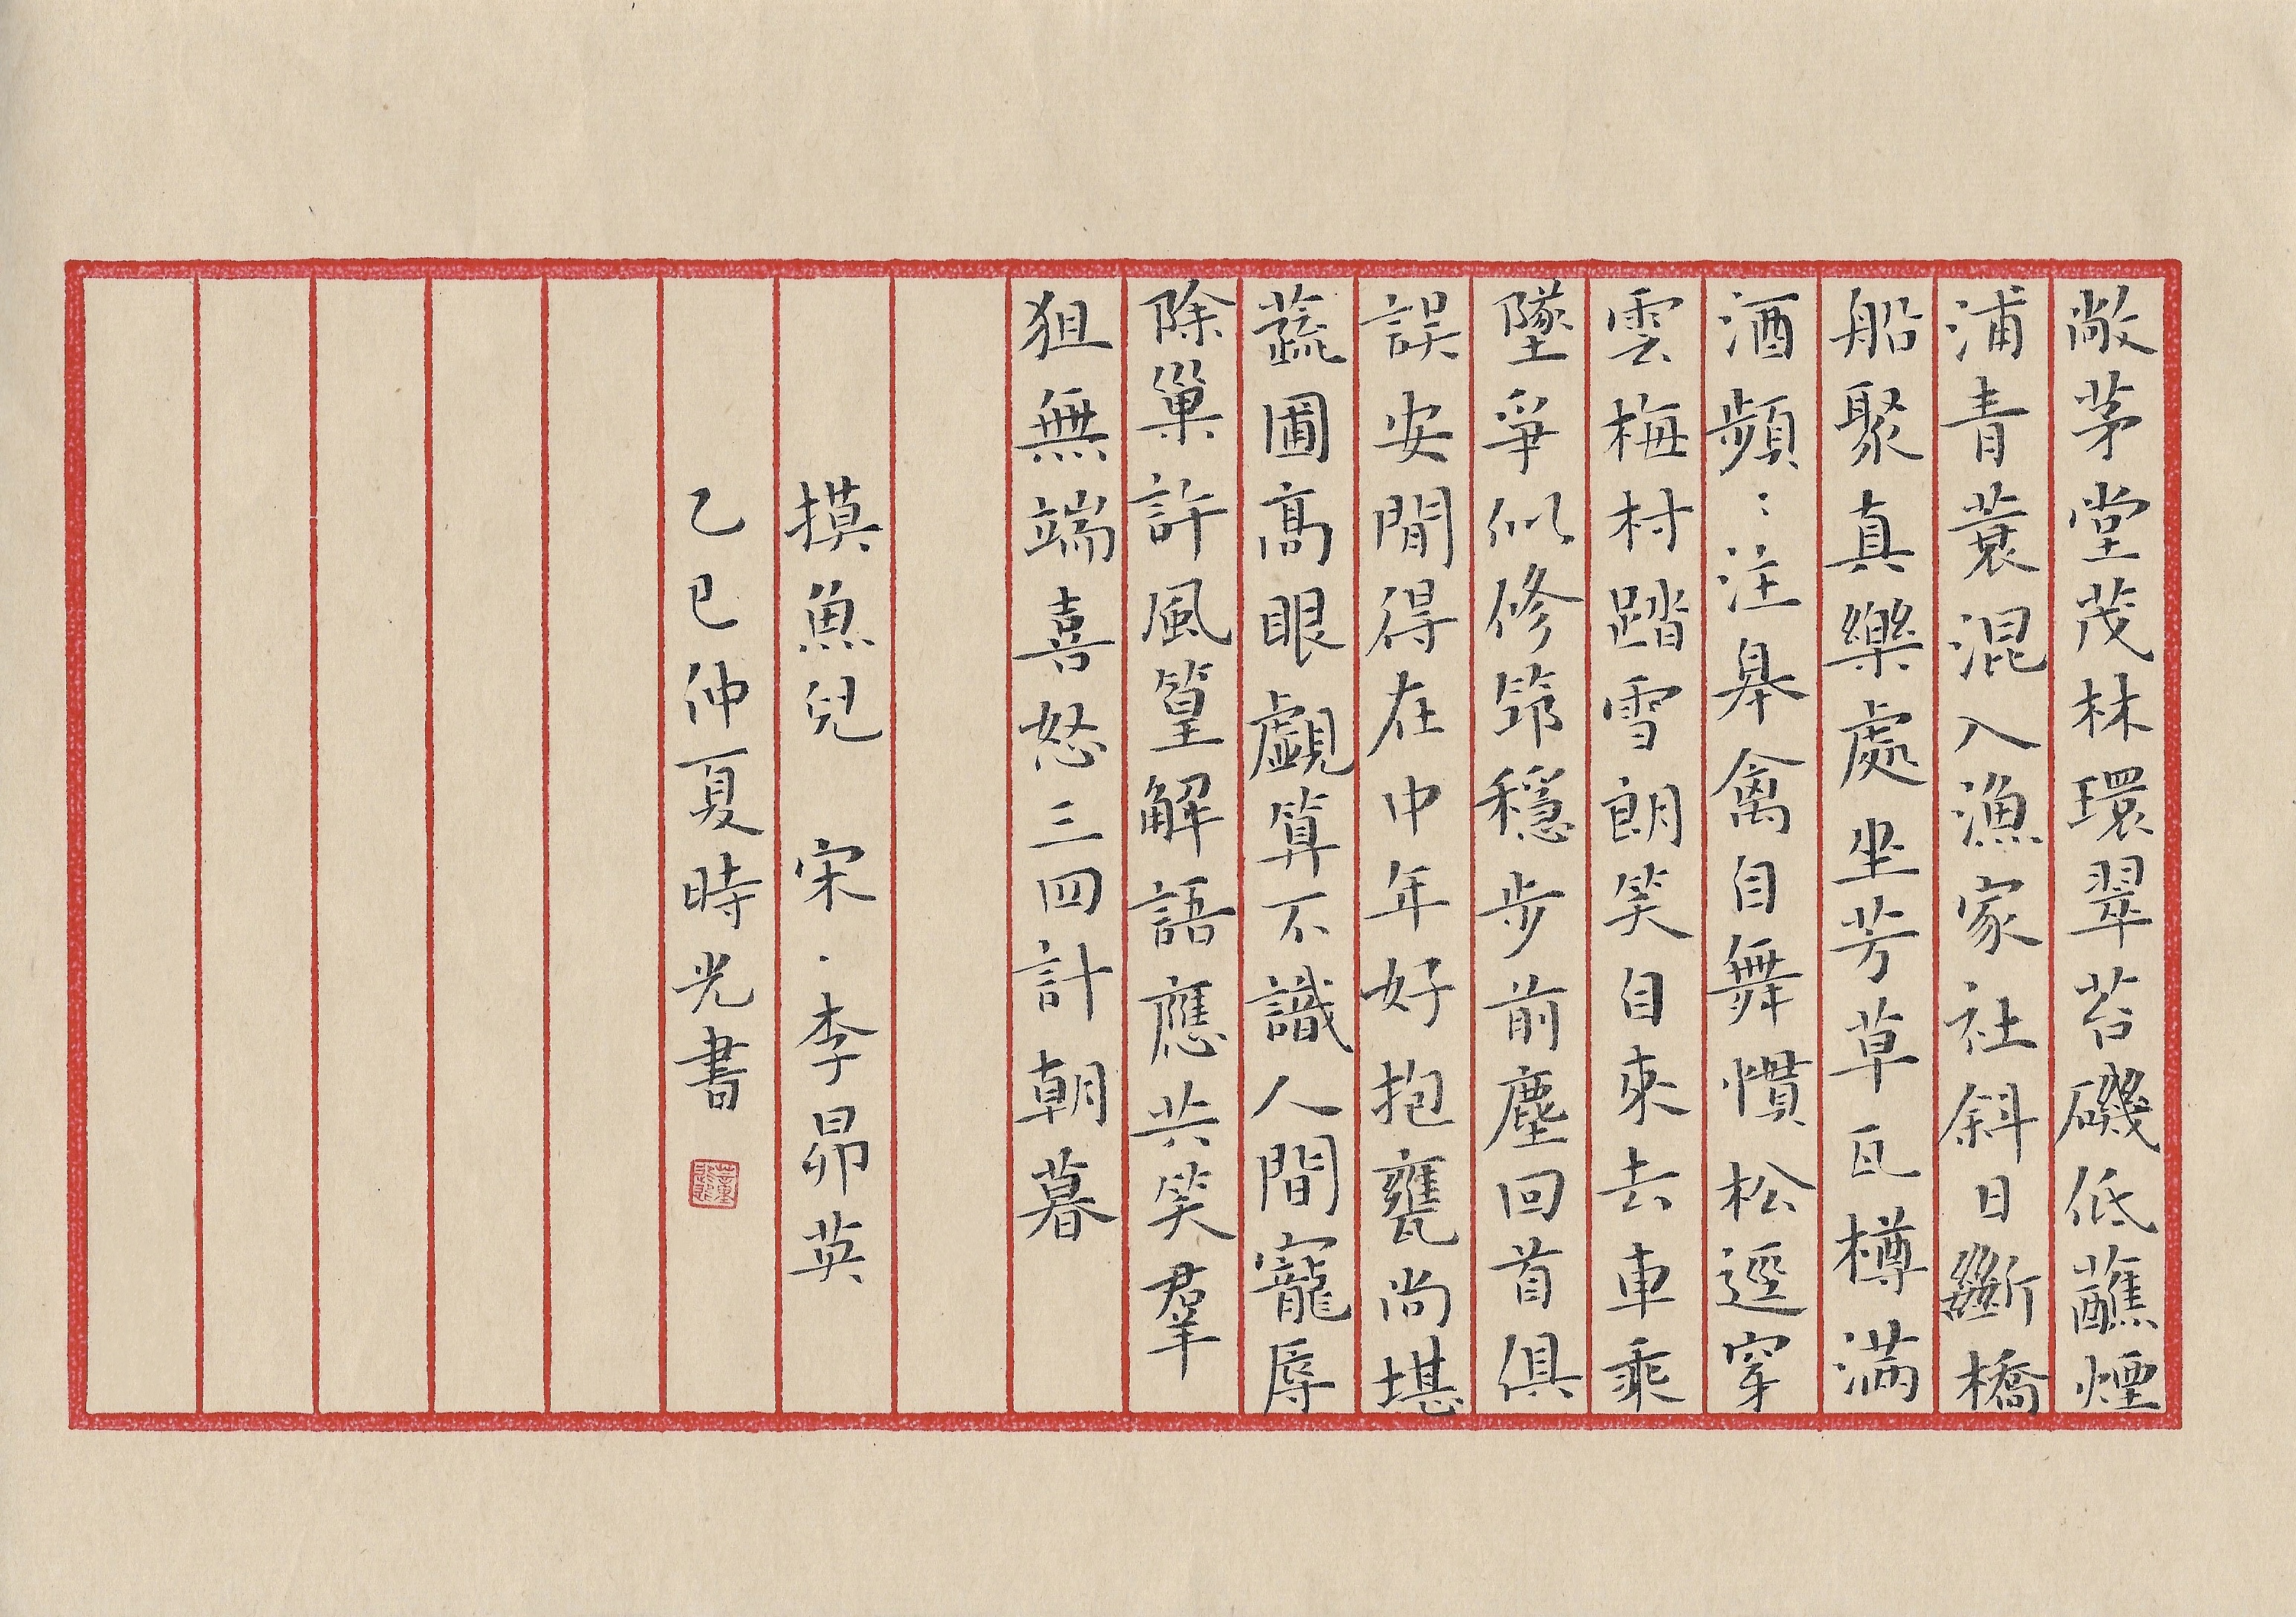 敞茅堂茂林環翠苔磯低蘸煙
浦青蓑混入漁家社斜日斷橋
船聚真樂處坐芳草瓦樽滿
酒頻〻注舉禽自舞慣松逕穿
雲梅村踏雪朗笑自來去車乘
墜爭似修筇穩步前塵回首俱
誤安閒得在中年好抱甕尚堪
蔬圃高眼覷算不識人間寵辱
除巢許風篁解語應共笑羣
狙無端喜怒三四計朝暮
摸魚兒 宋·李昴英
乙巳仲夏時光書